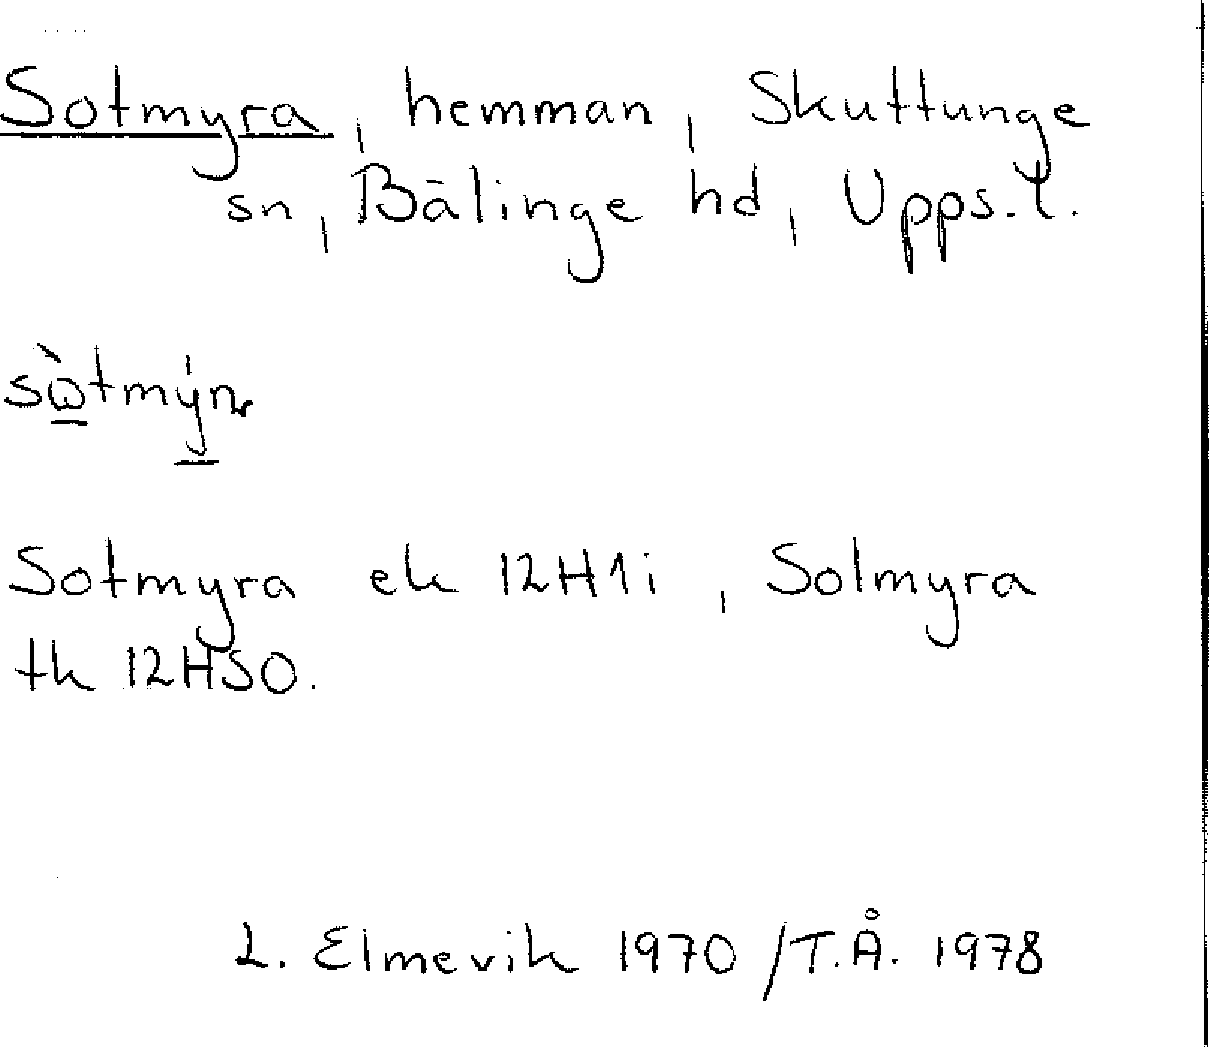 Sotmyra, hemman, Skuttunge
sn, Bälinge hd, Upps. l.
Sotmyra ek 12H1i, Solmyra
tk 12HSO.
L. Elmevik 1970 /T.Å. 1978